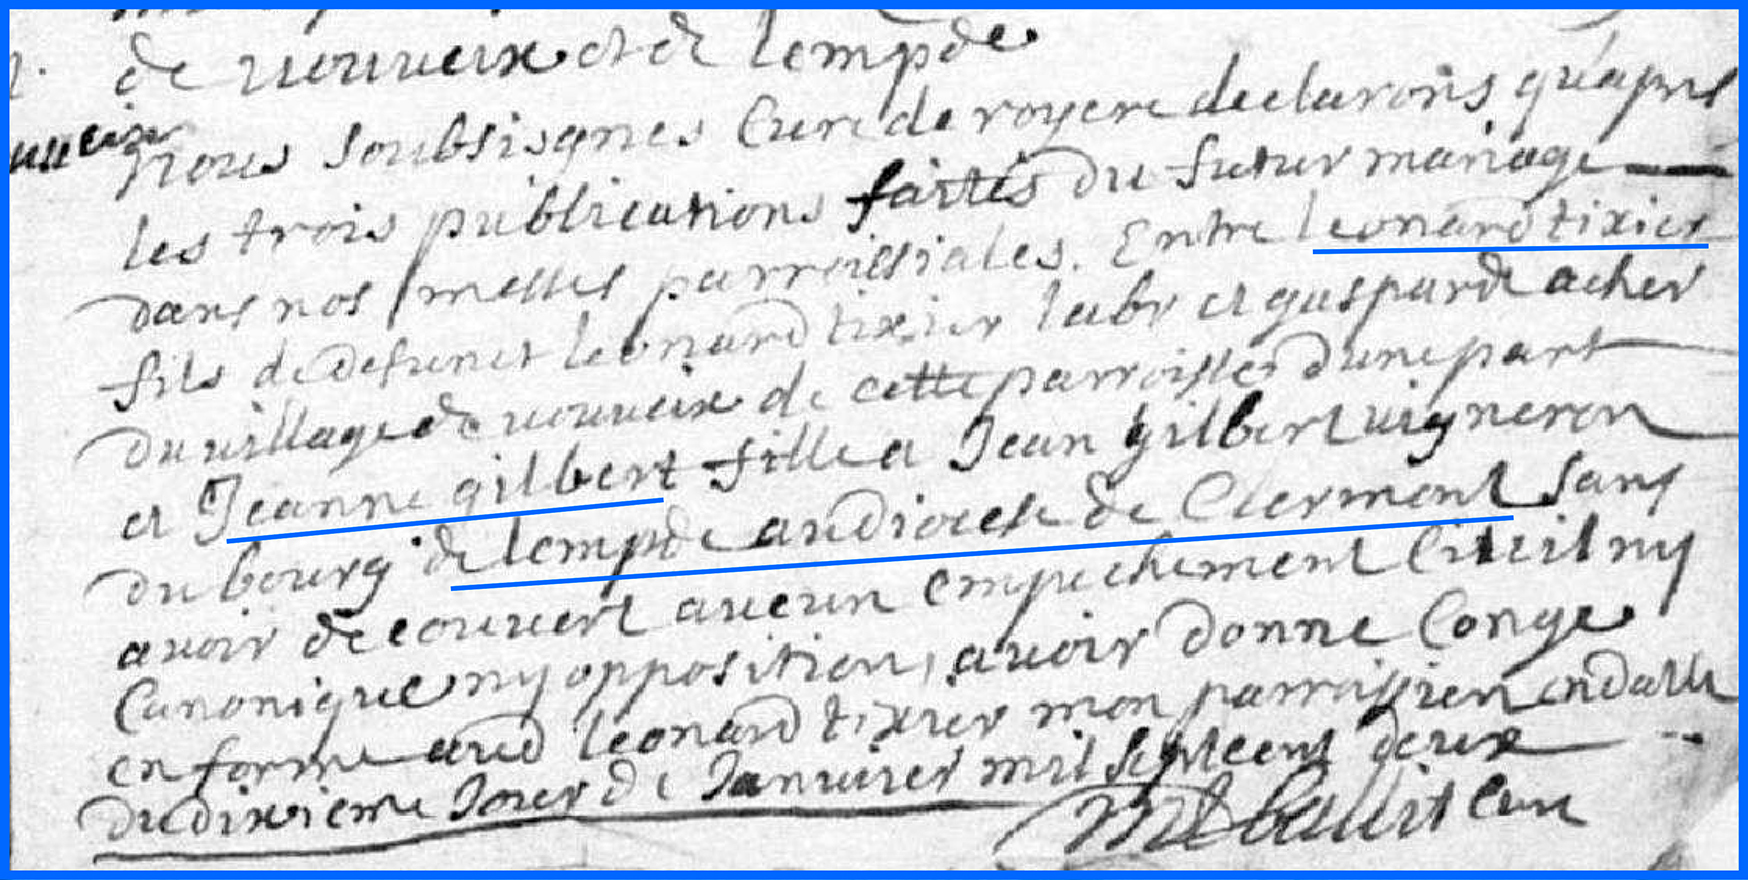 de vouveix et de lempde
nous soubsisgnes Cure de royere declarons qu'apres
les trois publications faittes du futur mariage
dans nos messes parroissiales. Entre leonard tixier
fils de defunct leonard tixier labr et gasparde acher
du village de vouveix de cette parroisse d'une part
et Jeanne gilbert fille a Jean gilbert vigneron
du bourg de lempde au diocese de Clermont sans
avoir decouvert aucun empechement Civil ny
Canonique ny opposition, avoir donne Conge
en forme aud leonard tixier mon parroissien en datte
du dixieme Jour de Janvier mil sept cent deux
cure